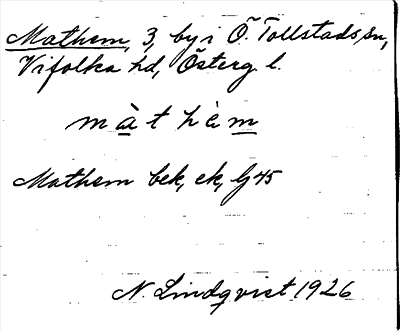 Mathem, 3, by i Ö. Tollstads sn,
Vifolka hd, Österg. l.
màthèm
Mathem bek, ek, lj 45
N. Lindqvist 1926